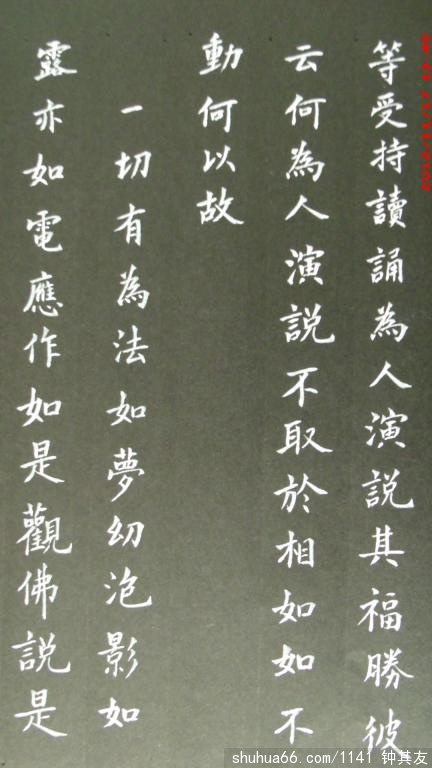 等受持讀誦為人演説其福勝彼
云何為人演説不取於相如如不
動何以故
一切有為法如夢幻泡影如
露亦如電應作如是觀佛説是
shuhua66.com/1141 钟其友